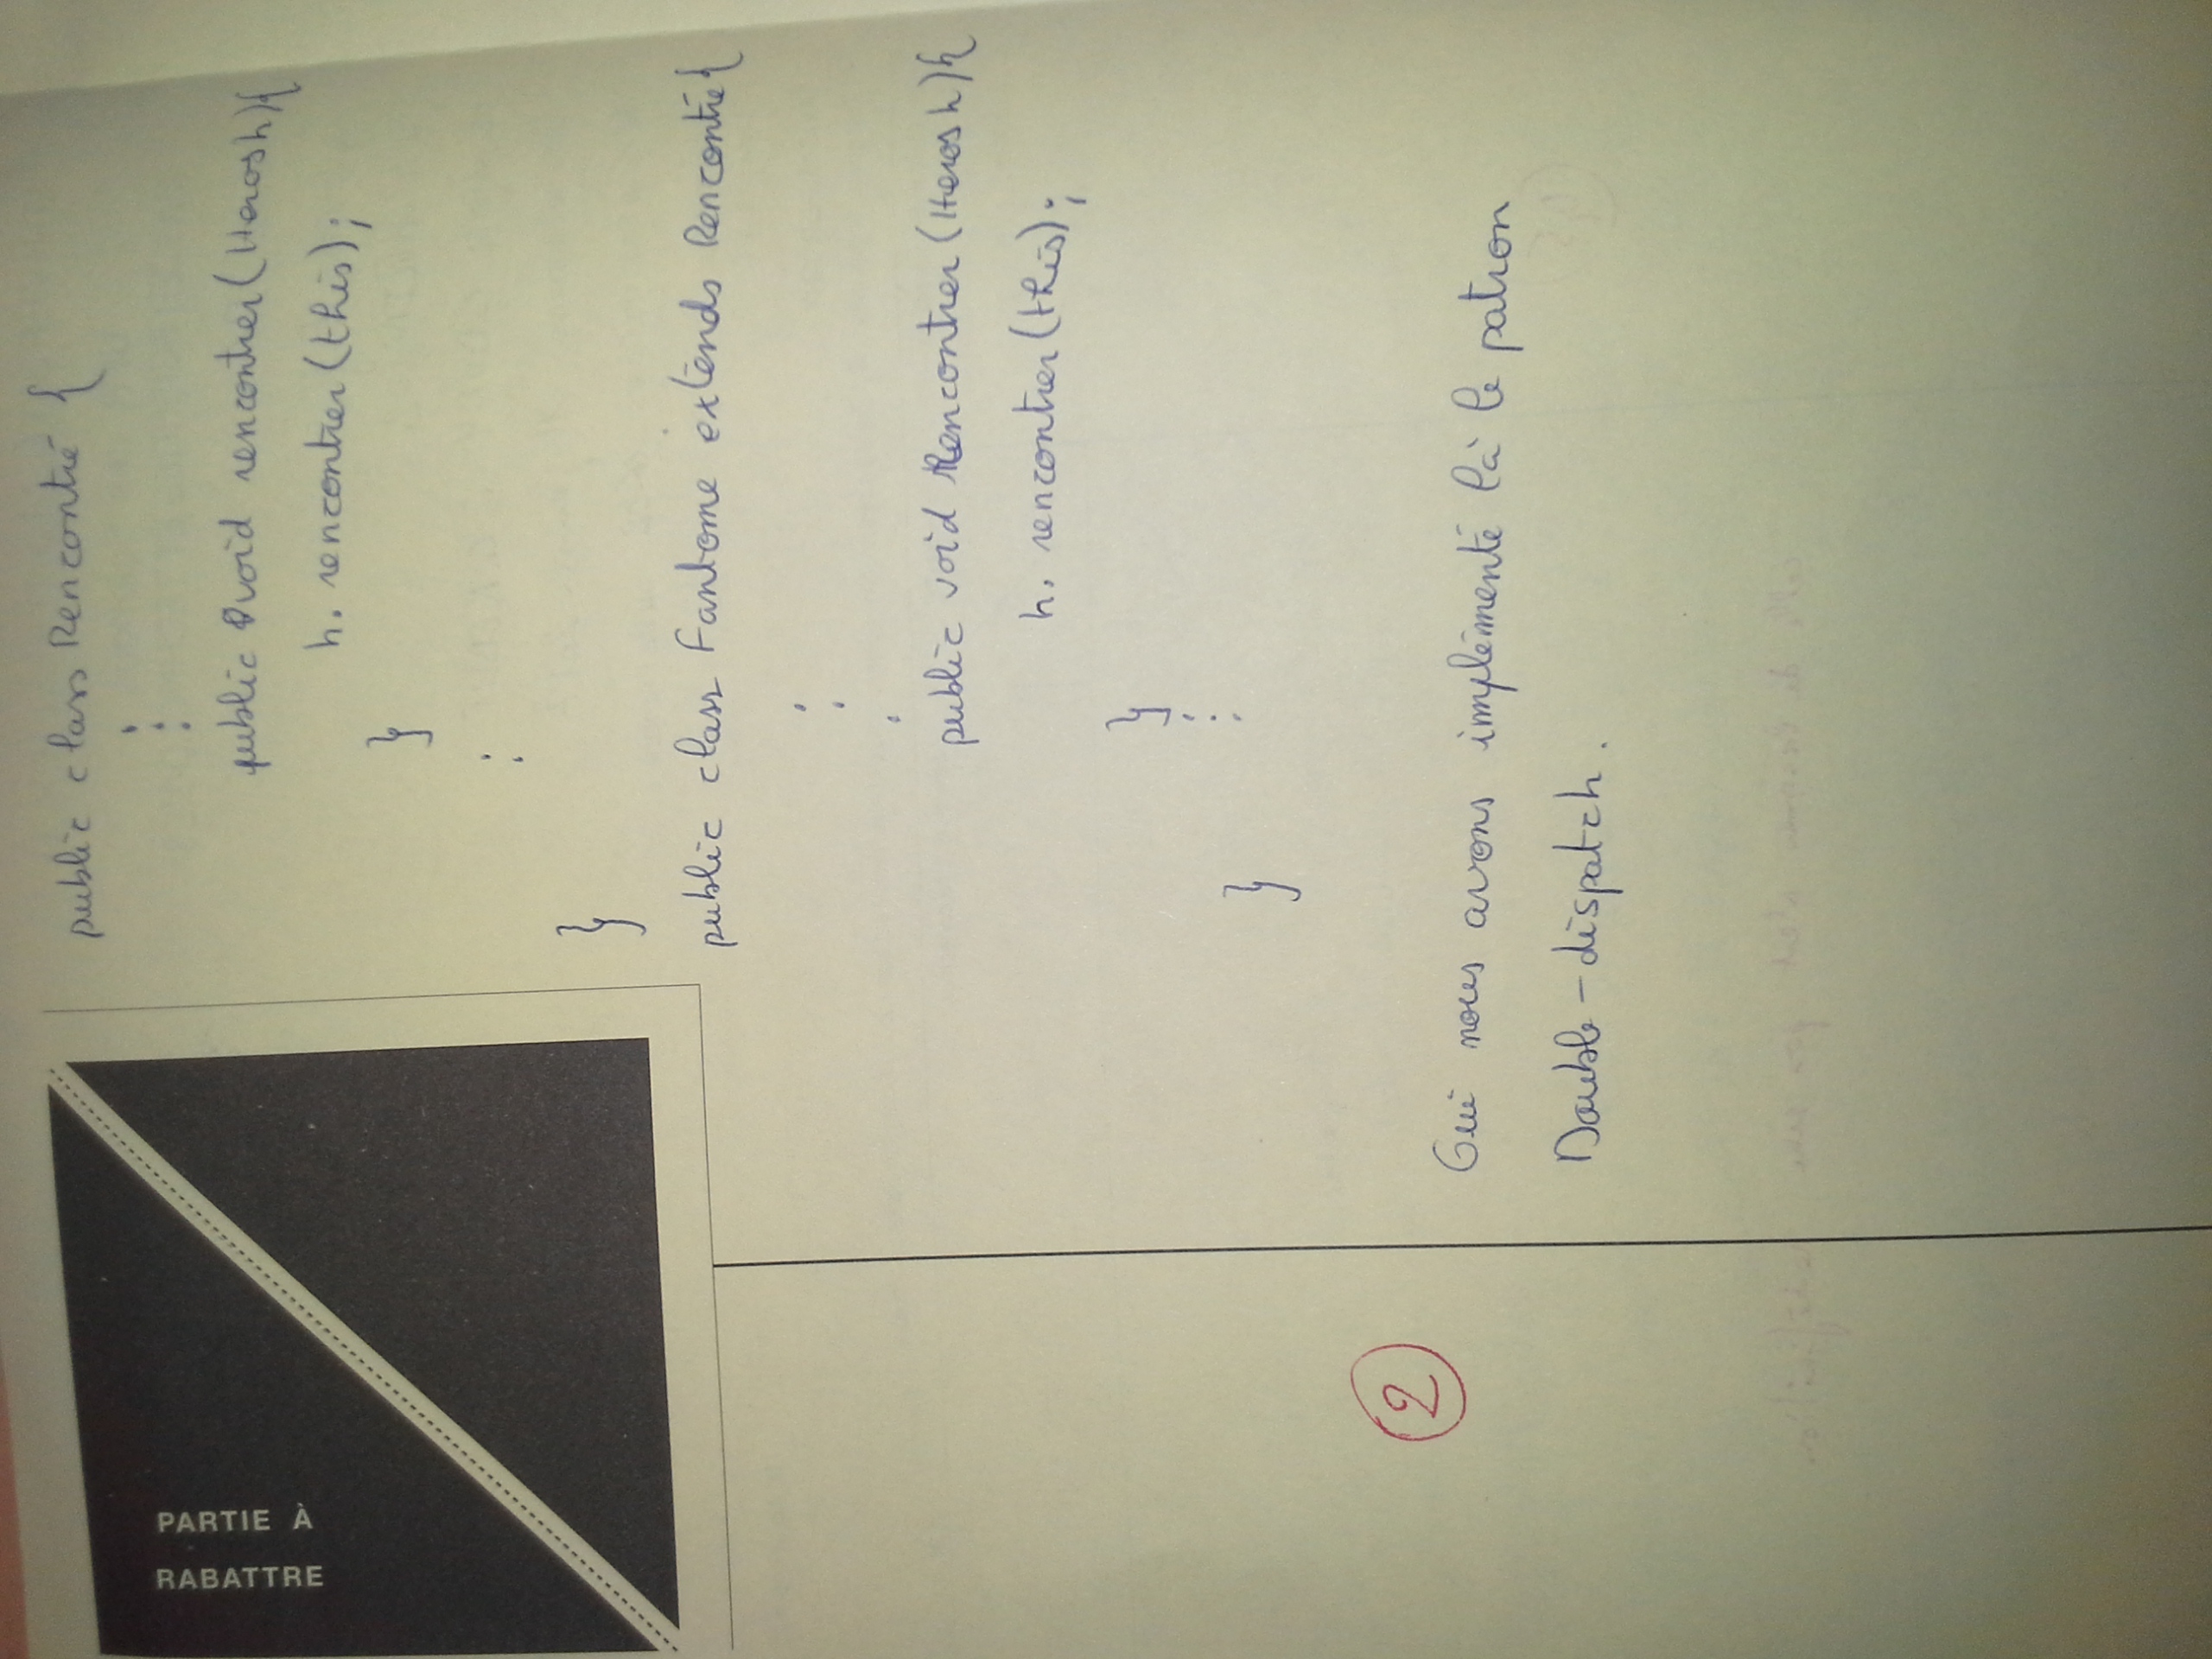 public class Rencontré {
⋮
public void rencontrer(Heros h){
h. rencontrer(this);
}
:
}
public class Fantome extends Rencontré {
⋮
public void Rencontrer(Heros h){
h. rencontrer(this);
}
⋮
}
Oui nous avons implémenté là le patron
Double-dispatch.
2
PARTIE À
RABATTRE